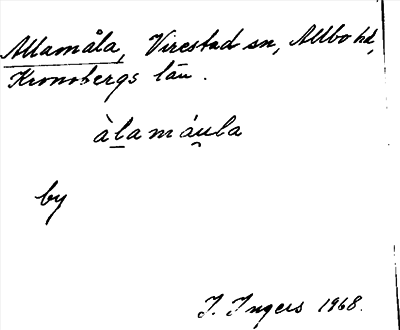 Allamåla, Virestad sn, Allbo hd,
Kronobergs län.
àlamáu̯la
by
I. Ingers 1968.